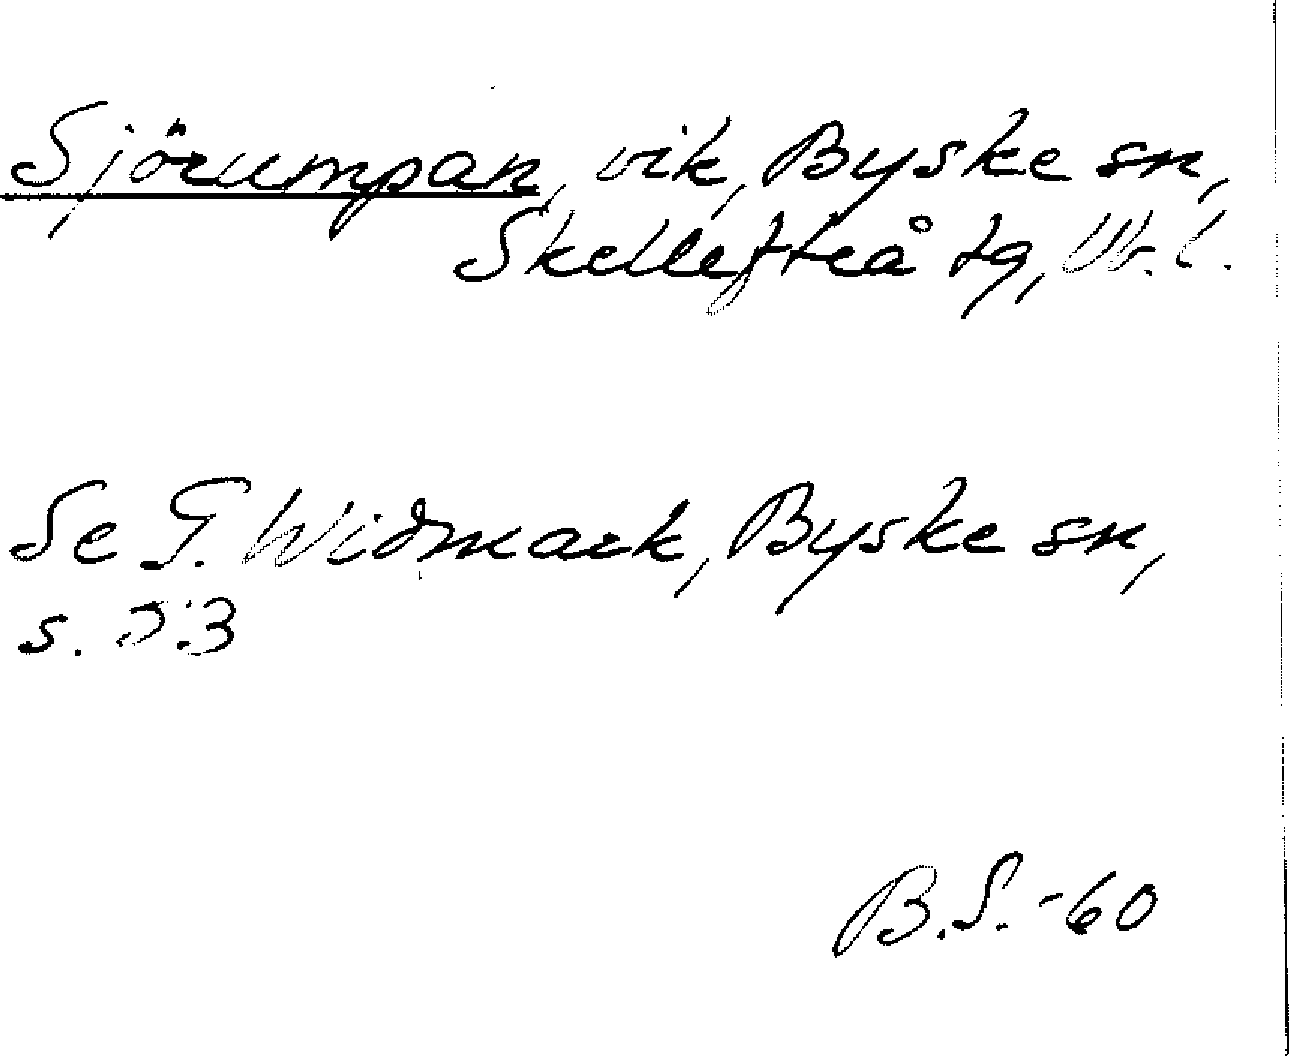 Sjörumpan, vik, Byske sn,
Skellefteå tg, Vb. l.
Se G. Widmark, Byske sn,
s.
B.S.-60